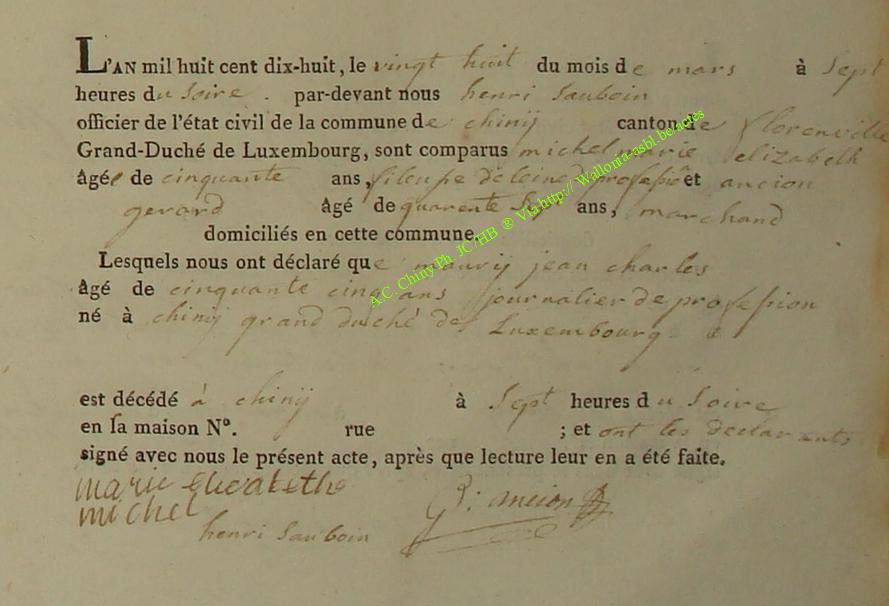 L'AN mil huit cent dix-huit, le vingt huit du mois de mars à Sept
heures du Soire . par-devant nous henri Sauboin
officier de l'état civil de la commune de chinij canton de florenville
Grand-Duché de Luxembourg, sont comparus michel marie elizabeth
âgée de cinquante ans, fileuse de leine de profession et ancion
gerard âgé de quarente Sept ans, marchand
domiciliés en cette commune.
Lesquels nous ont déclaré que maurij jean charles
âgé de cinquante cinq ans journalier de profession
né à chinij grand duché de Luxembourg
est décédé à chinij à Sept heures du Soire
en sa maison N°. rue ; et ont les declarants
signé avec nous le présent acte, après que lecture leur en a été faite.
marie elisabethe
michel
G: ancion
henri Sauboin
A.C. Chiny Ph JC/HB ® Via http:// Wallonia-asbl.be/actes